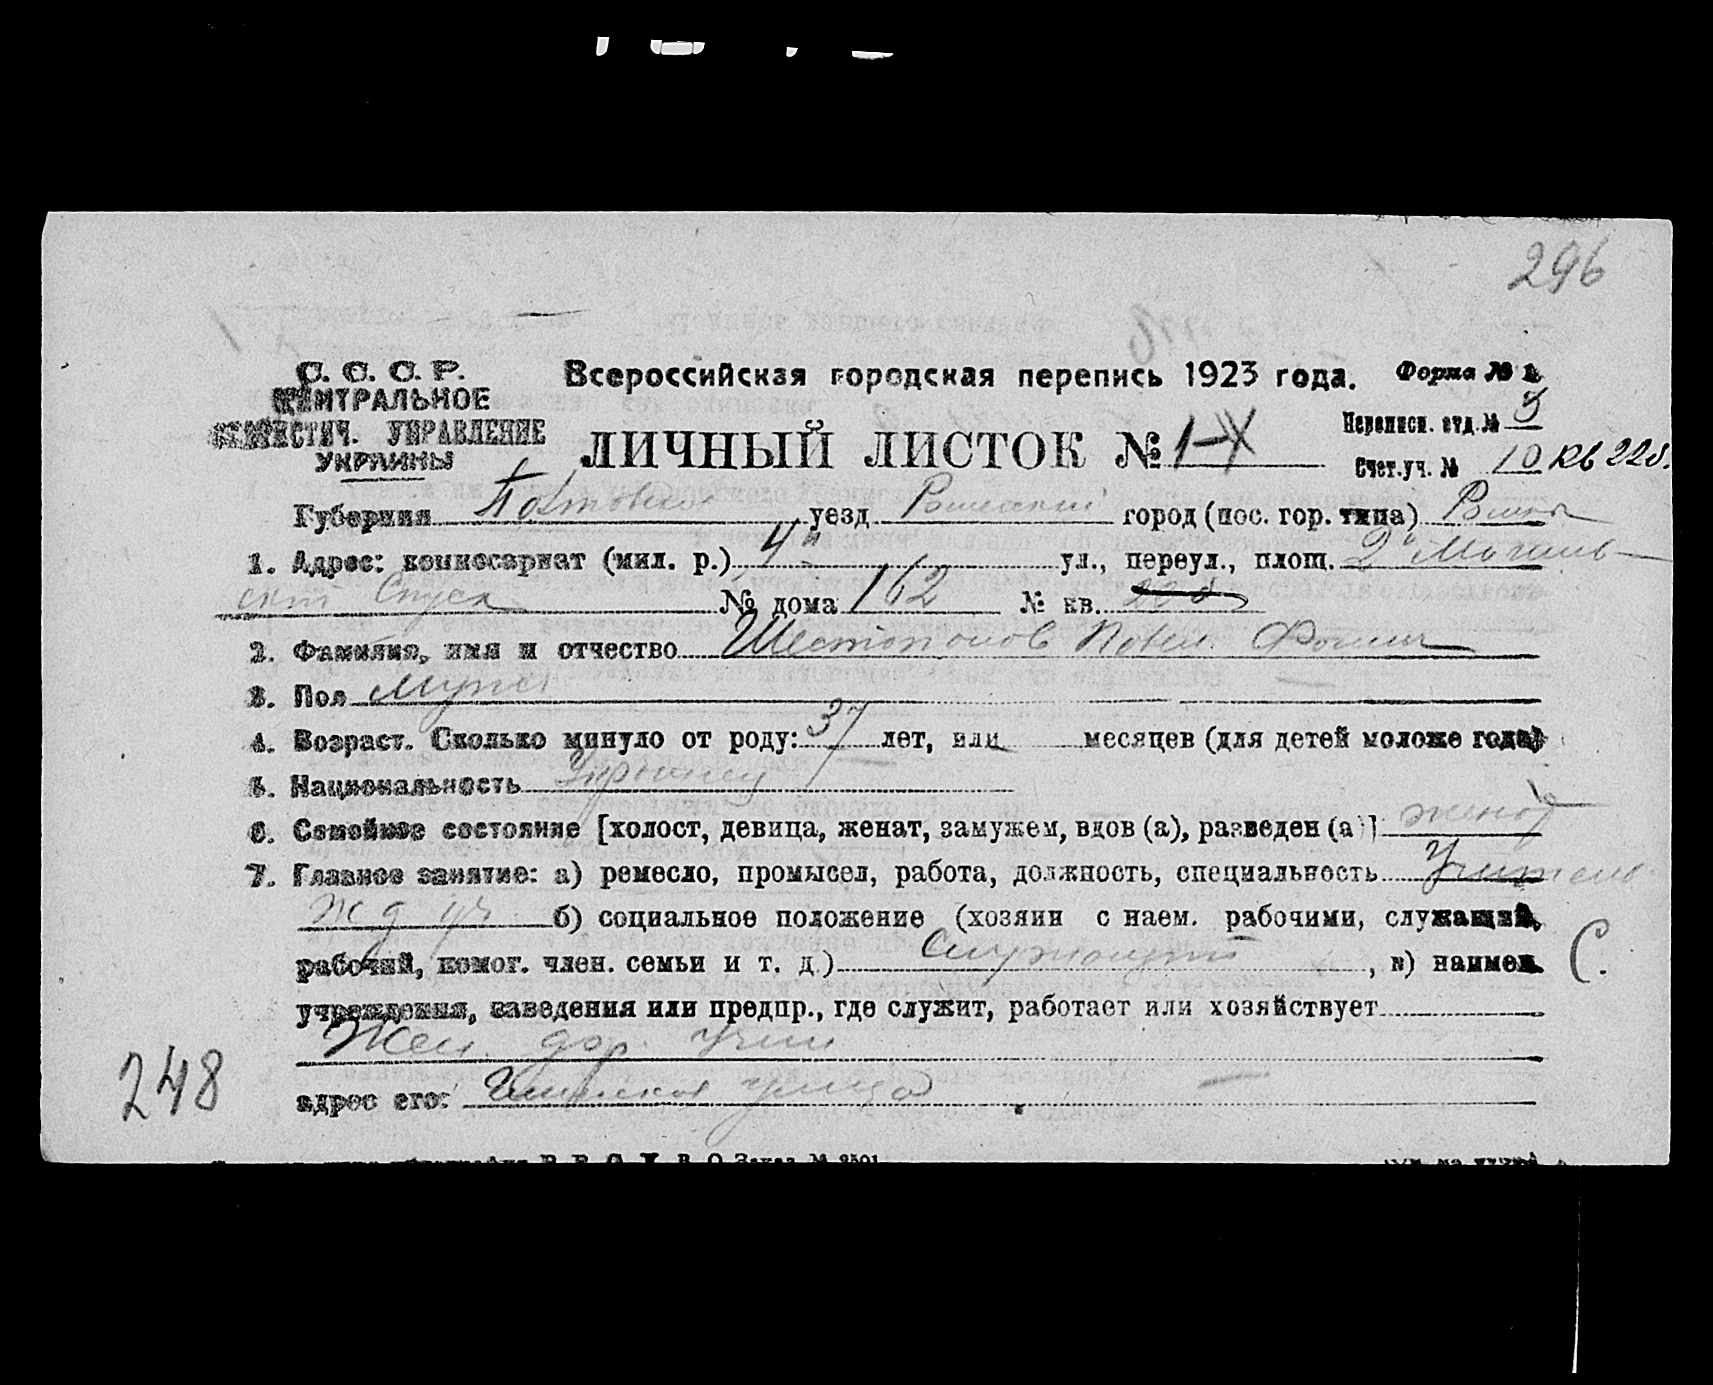 296
С. С. С. Р.
ЦЕНТРАЛЬНОЕ
СТАТИСТИЧ. УПРАВЛЕНИЕ
УКРАИНЫ
Всероссийская городская перепись 1923 года.
Форма № 1
ЛИЧНЫЙ ЛИСТОК №
Переписн. отд. №
Счет. уч. № 10 кв 228.
Губерния Полтовская уезд Роменский город (пос. гор. типа) Ромны
1. Адрес: комиссариат (мил. р.) 4й ул., переул., площ. 2й Могилев-
ский Спуск № дома 162 № кв.
2. Фамилия, имя и отчество Шестопалов Фомич
3. Пол мужск
4. Возраст. Сколько минуло от роду: 37 лет, или месяцев (для детей моложе года)
5. Национальность Украинец
6. Семейное состояние [холост, девица, женат, замужем, вдов (а), разведен (а)] женат
7. Главное занятие: а) ремесло, промысел, работа, должность, специальность Учитель
б) социальное положение (хозяин с наем. рабочими, служащий,
рабочий, помог. член. семьи и т. д.) Служащий, в) наимен. С.
учреждения, заведения или предпр., где служит, работает или хозяйствует
Жел. дор.
адрес его: улица
248